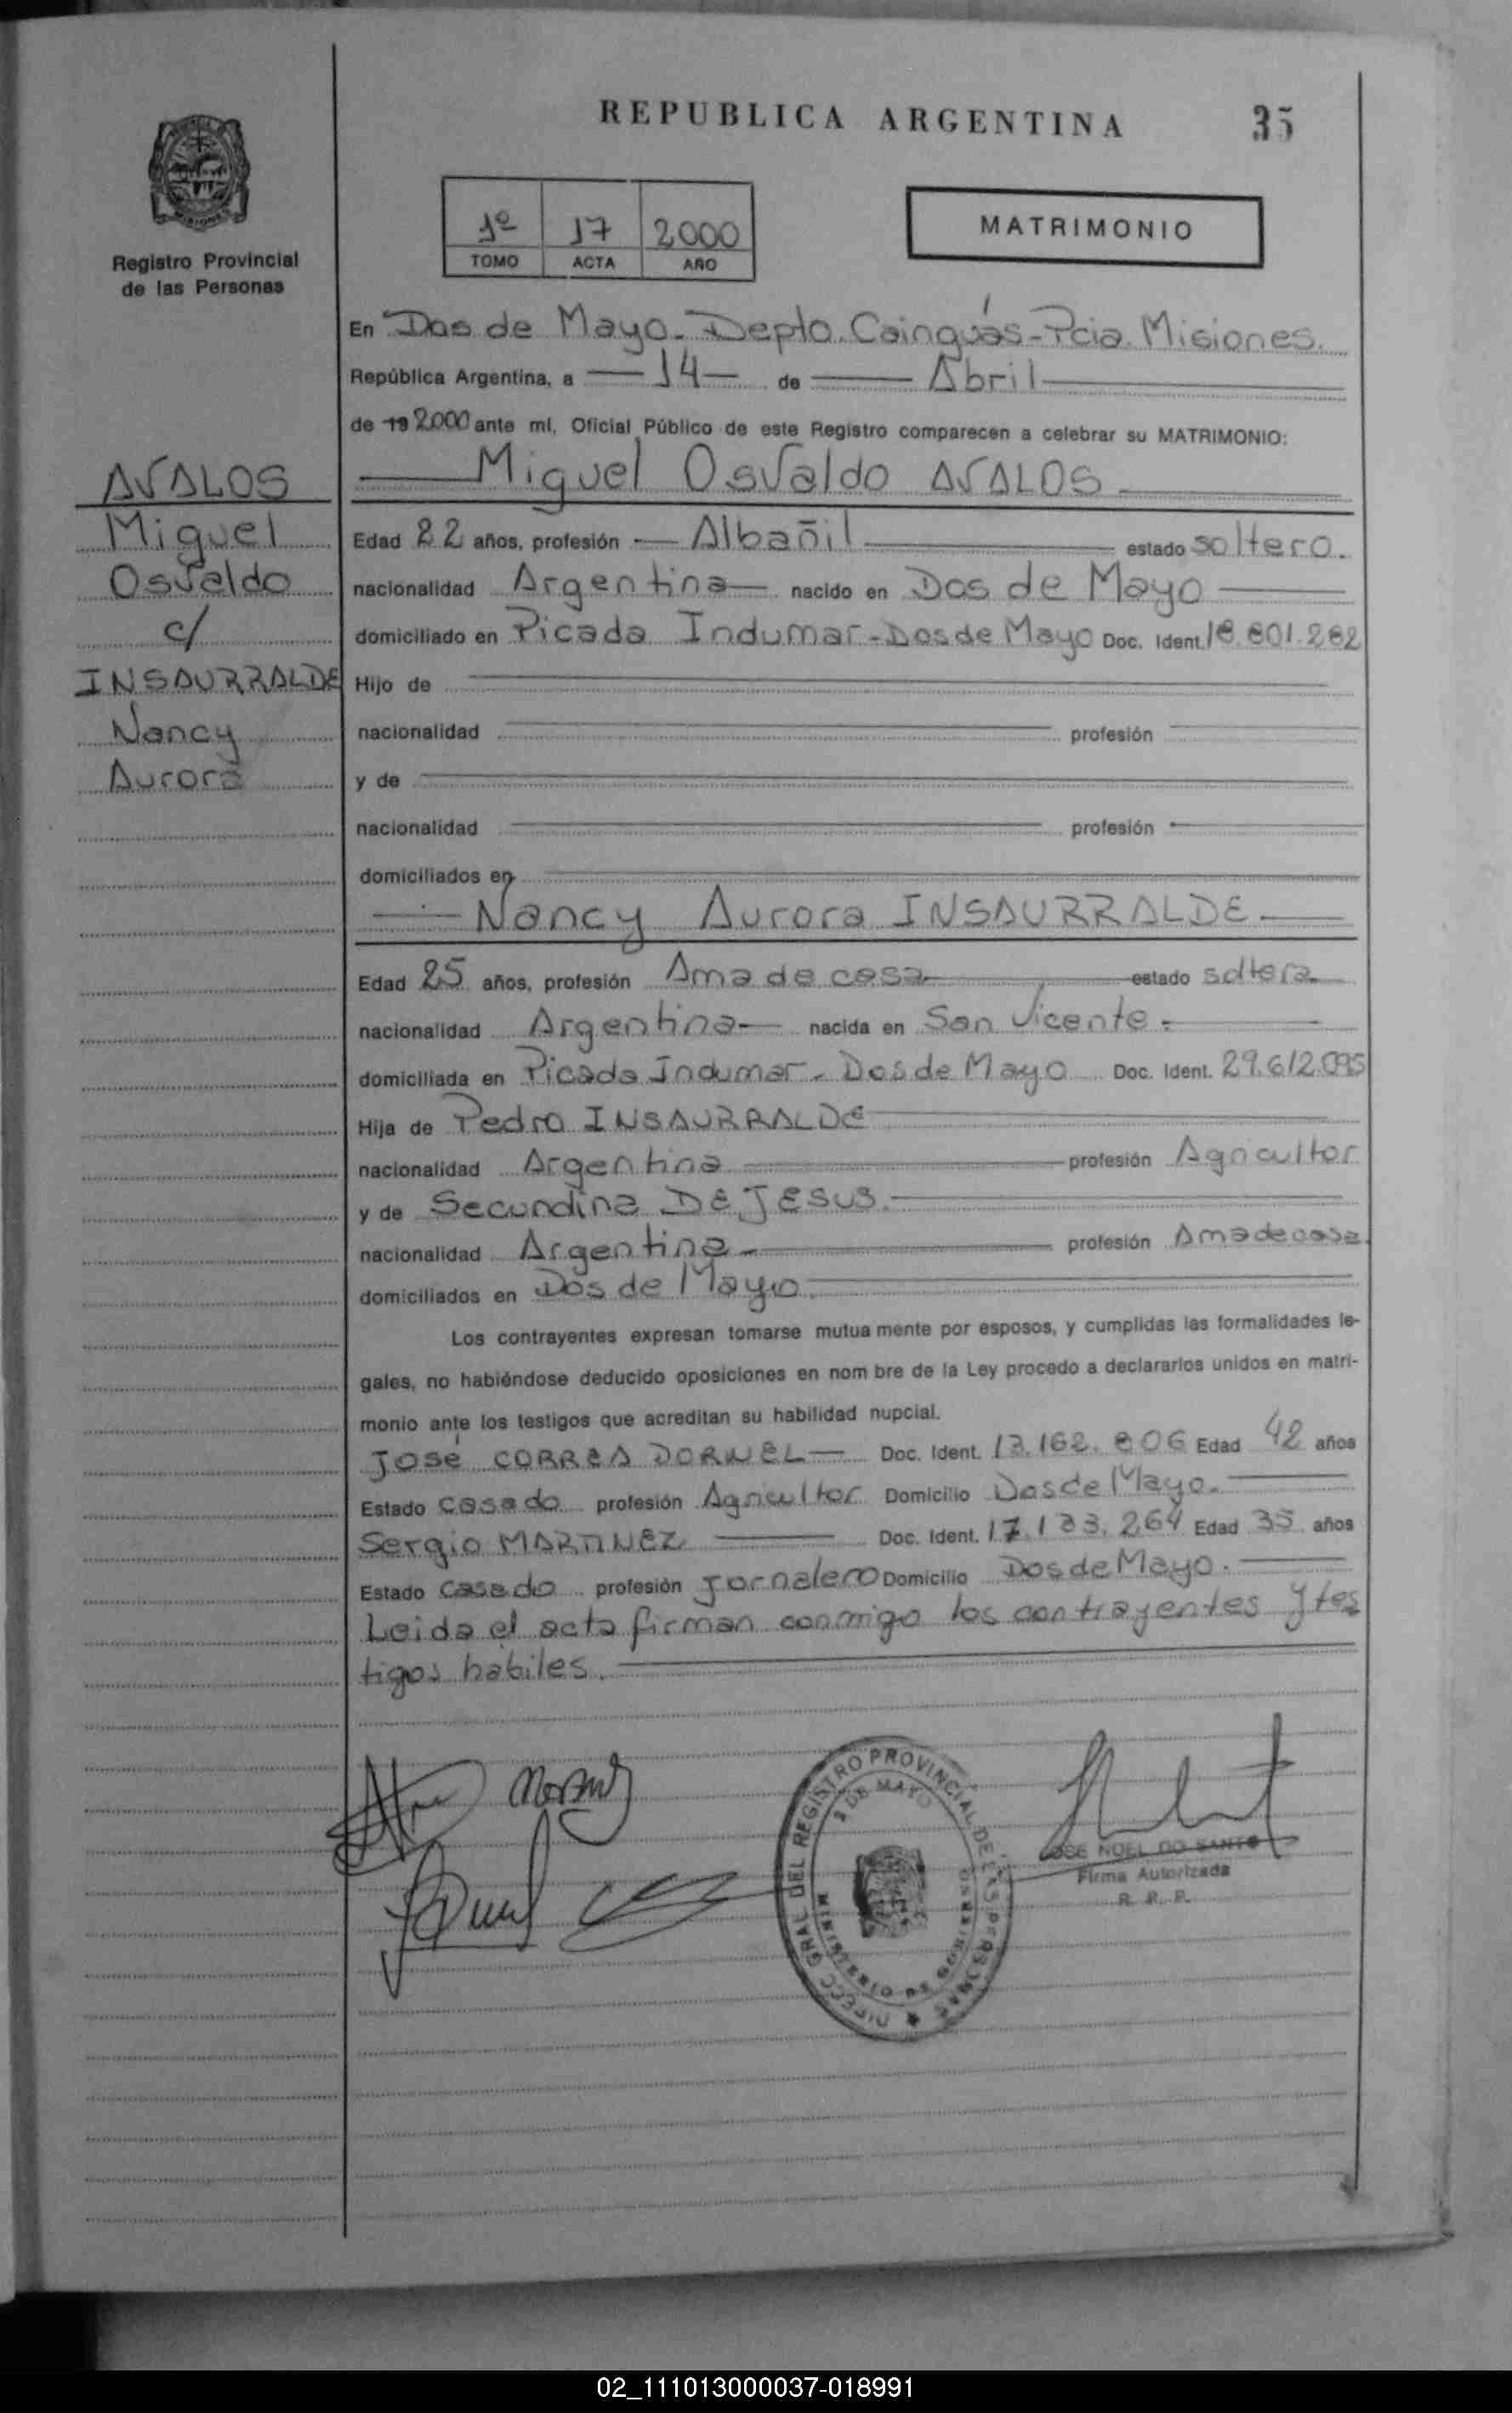 REPUBLICA ARGENTINA
35
Registro Provincial
de las Personas
1º 17 2000
TOMO ACTA AÑO
MATRIMONIO
En Dos de Mayo - Depto. Cainguás - Pcia. Misiones.
República Argentina, a 14 de Abril
de 19 2000 ante mí, Oficial Público de este Registro comparecen a celebrar su MATRIMONIO:
AVALOS
Miguel
Osvaldo
c/
INSAURRALDE
Nancy
Aurora
Miguel Osvaldo AVALOS
Edad 22 años, profesión Albañil estado soltero.
nacionalidad Argentina nacido en Dos de Mayo
domiciliado en Picada Indumar - Dos de Mayo Doc. Ident.
Hijo de
nacionalidad profesión
y de
nacionalidad profesión
domiciliados en
Nancy Aurora INSAURRALDE
Edad 25 años, profesión Ama de casa estado soltera
nacionalidad Argentina nacida en San Vicente.
domiciliada en Picada Indumar - Dos de Mayo Doc. Ident. 29.612.095
Hija de Pedro INSAURRALDE
nacionalidad Argentina profesión Agricultor
y de Secundina DE JESUS.
nacionalidad Argentina profesión Ama de casa.
domiciliados en Dos de Mayo.
Los contrayentes expresan tomarse mutua mente por esposos, y cumplidas las formalidades le-
gales, no habiéndose deducido oposiciones en nom bre de la Ley procedo a declararlos unidos en matri-
monio ante los testigos que acreditan su habilidad nupcial.
José CORREA DORNEL Doc. Ident. Edad 42 años
Estado casado profesión Agricultor Domicilio Dos de Mayo.
Sergio MARTINEZ Doc. Ident. 17.133.264 Edad 35 años
Estado casado profesión Jornalero Domicilio Dos de Mayo.
Leida el acta firman conmigo los contrayentes y tes
tigos habiles.
DIRECC GRAL DEL REGISTRO PROVINCIAL DE LAS PERSONAS
2 DE MAYO
MINISTERIO DE GOBIERNO
JOSE NOEL DO SANTO
Firma Autorizada
R. P. P.
02_111013000037-018991